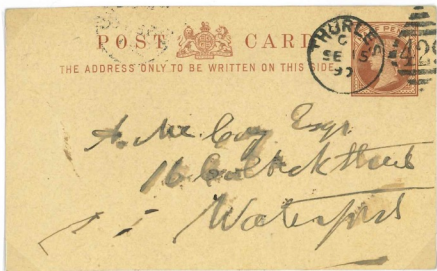 POST CARD
THE ADDRESS ONLY TO BE WRITTEN ON THIS SIDE
THURLES
C
SE 15
97
42
A. McCoy Esqr
16 Street
Waterford